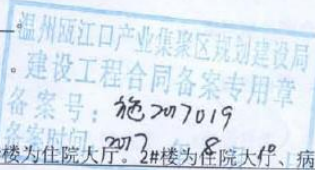 。
温州瓯江口产业集聚区规划建设局
建设工程合同备案专用章
备案号：施2017019
备案时间：2017 8 10
楼为住院大厅。2#楼为住院大厅、病